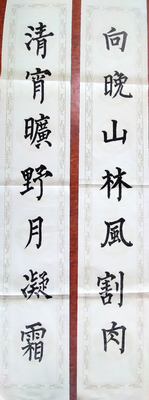 向晚山林風割肉
清宵曠野月凝霜